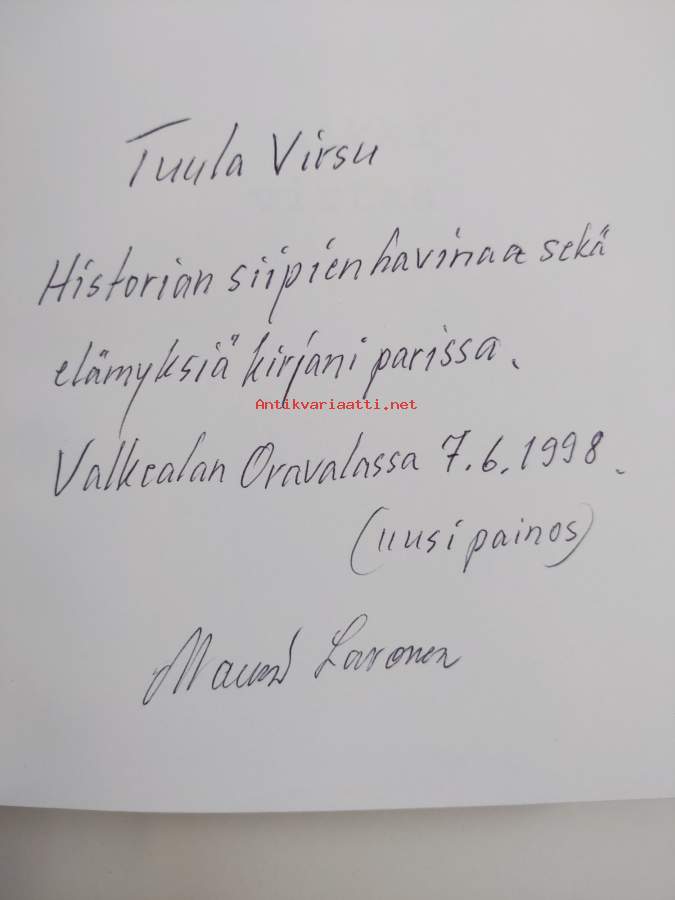 Tuula Virsu
Historian siipien havinaa sekä
elämyksiä kirjani parissa.
Antikvariaatti.net
Valkealan Oravalassa 7.6.1998.
(uusi painos)
Lavonen